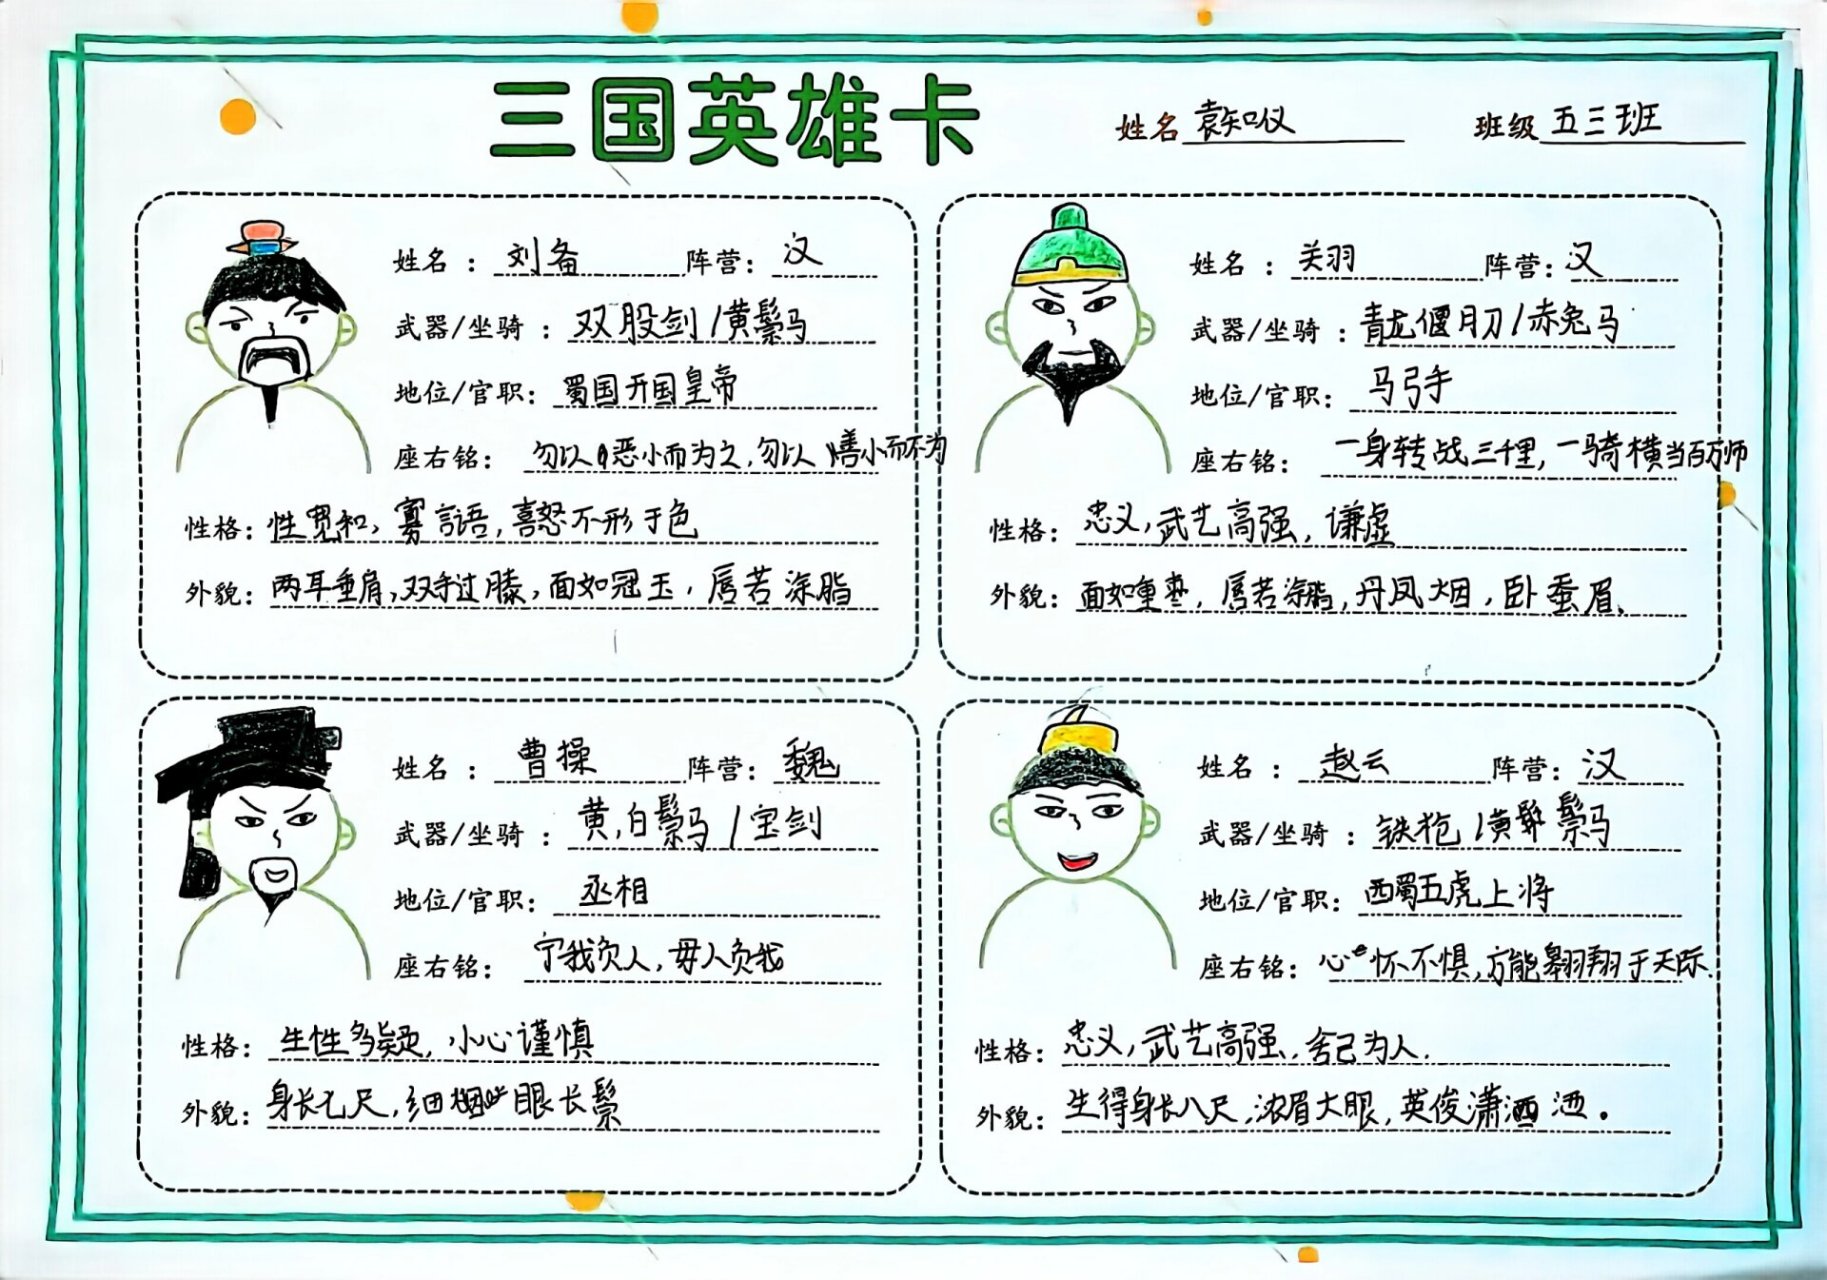 三国英雄卡
姓名 袁知仪 班级 五三班
姓名：刘备 阵营：汉
武器/坐骑：双股剑/黄鬃马
地位/官职：蜀国开国皇帝
座右铭：勿以恶小而为之,勿以善小而不为
性格：性宽和,寡言语,喜怒不形于色
外貌：两耳垂肩,双手过膝,面如冠玉,唇若涂脂
姓名：关羽 阵营：汉
武器/坐骑：青龙偃月刀/赤兔马
地位/官职：马弓手
座右铭：一身转战三千里,一骑横当百万师
性格：忠义,武艺高强,谦虚
外貌：面如重枣,唇若涂脂,丹凤烟,卧蚕眉、
姓名：曹操 阵营：魏
武器/坐骑：黄,白鬃马/宝剑
地位/官职：丞相
座右铭：宁我负人,毋人负我
性格：生性多疑,小心谨慎
外貌：身长七尺,细眼长鬃
姓名：赵云 阵营：汉
武器/坐骑：铁袍/黄鬃马
地位/官职：西蜀五虎上将
座右铭：心怀不惧,方能翱翔于天际.
性格：忠义,武艺高强,舍己为人.
外貌：生得身长八尺,浓眉大眼,英俊潇洒。